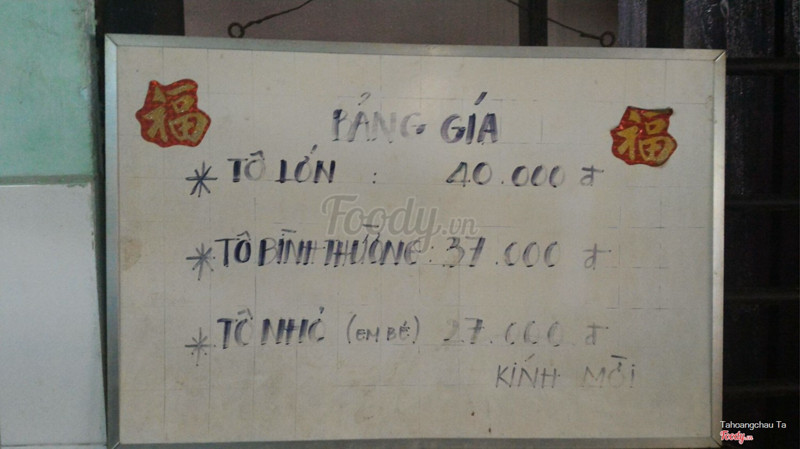 福 福
BẢNG GÍA
* TÔ LỚN : 40.000 đ
Foody.vn
* TÔ BÌNH THƯỜNG: 37.000 đ
* TÔ NHỎ (EM BÉ) 27.000 đ
KÍNH MỜI
Tahoangchau Ta
Foody.vn